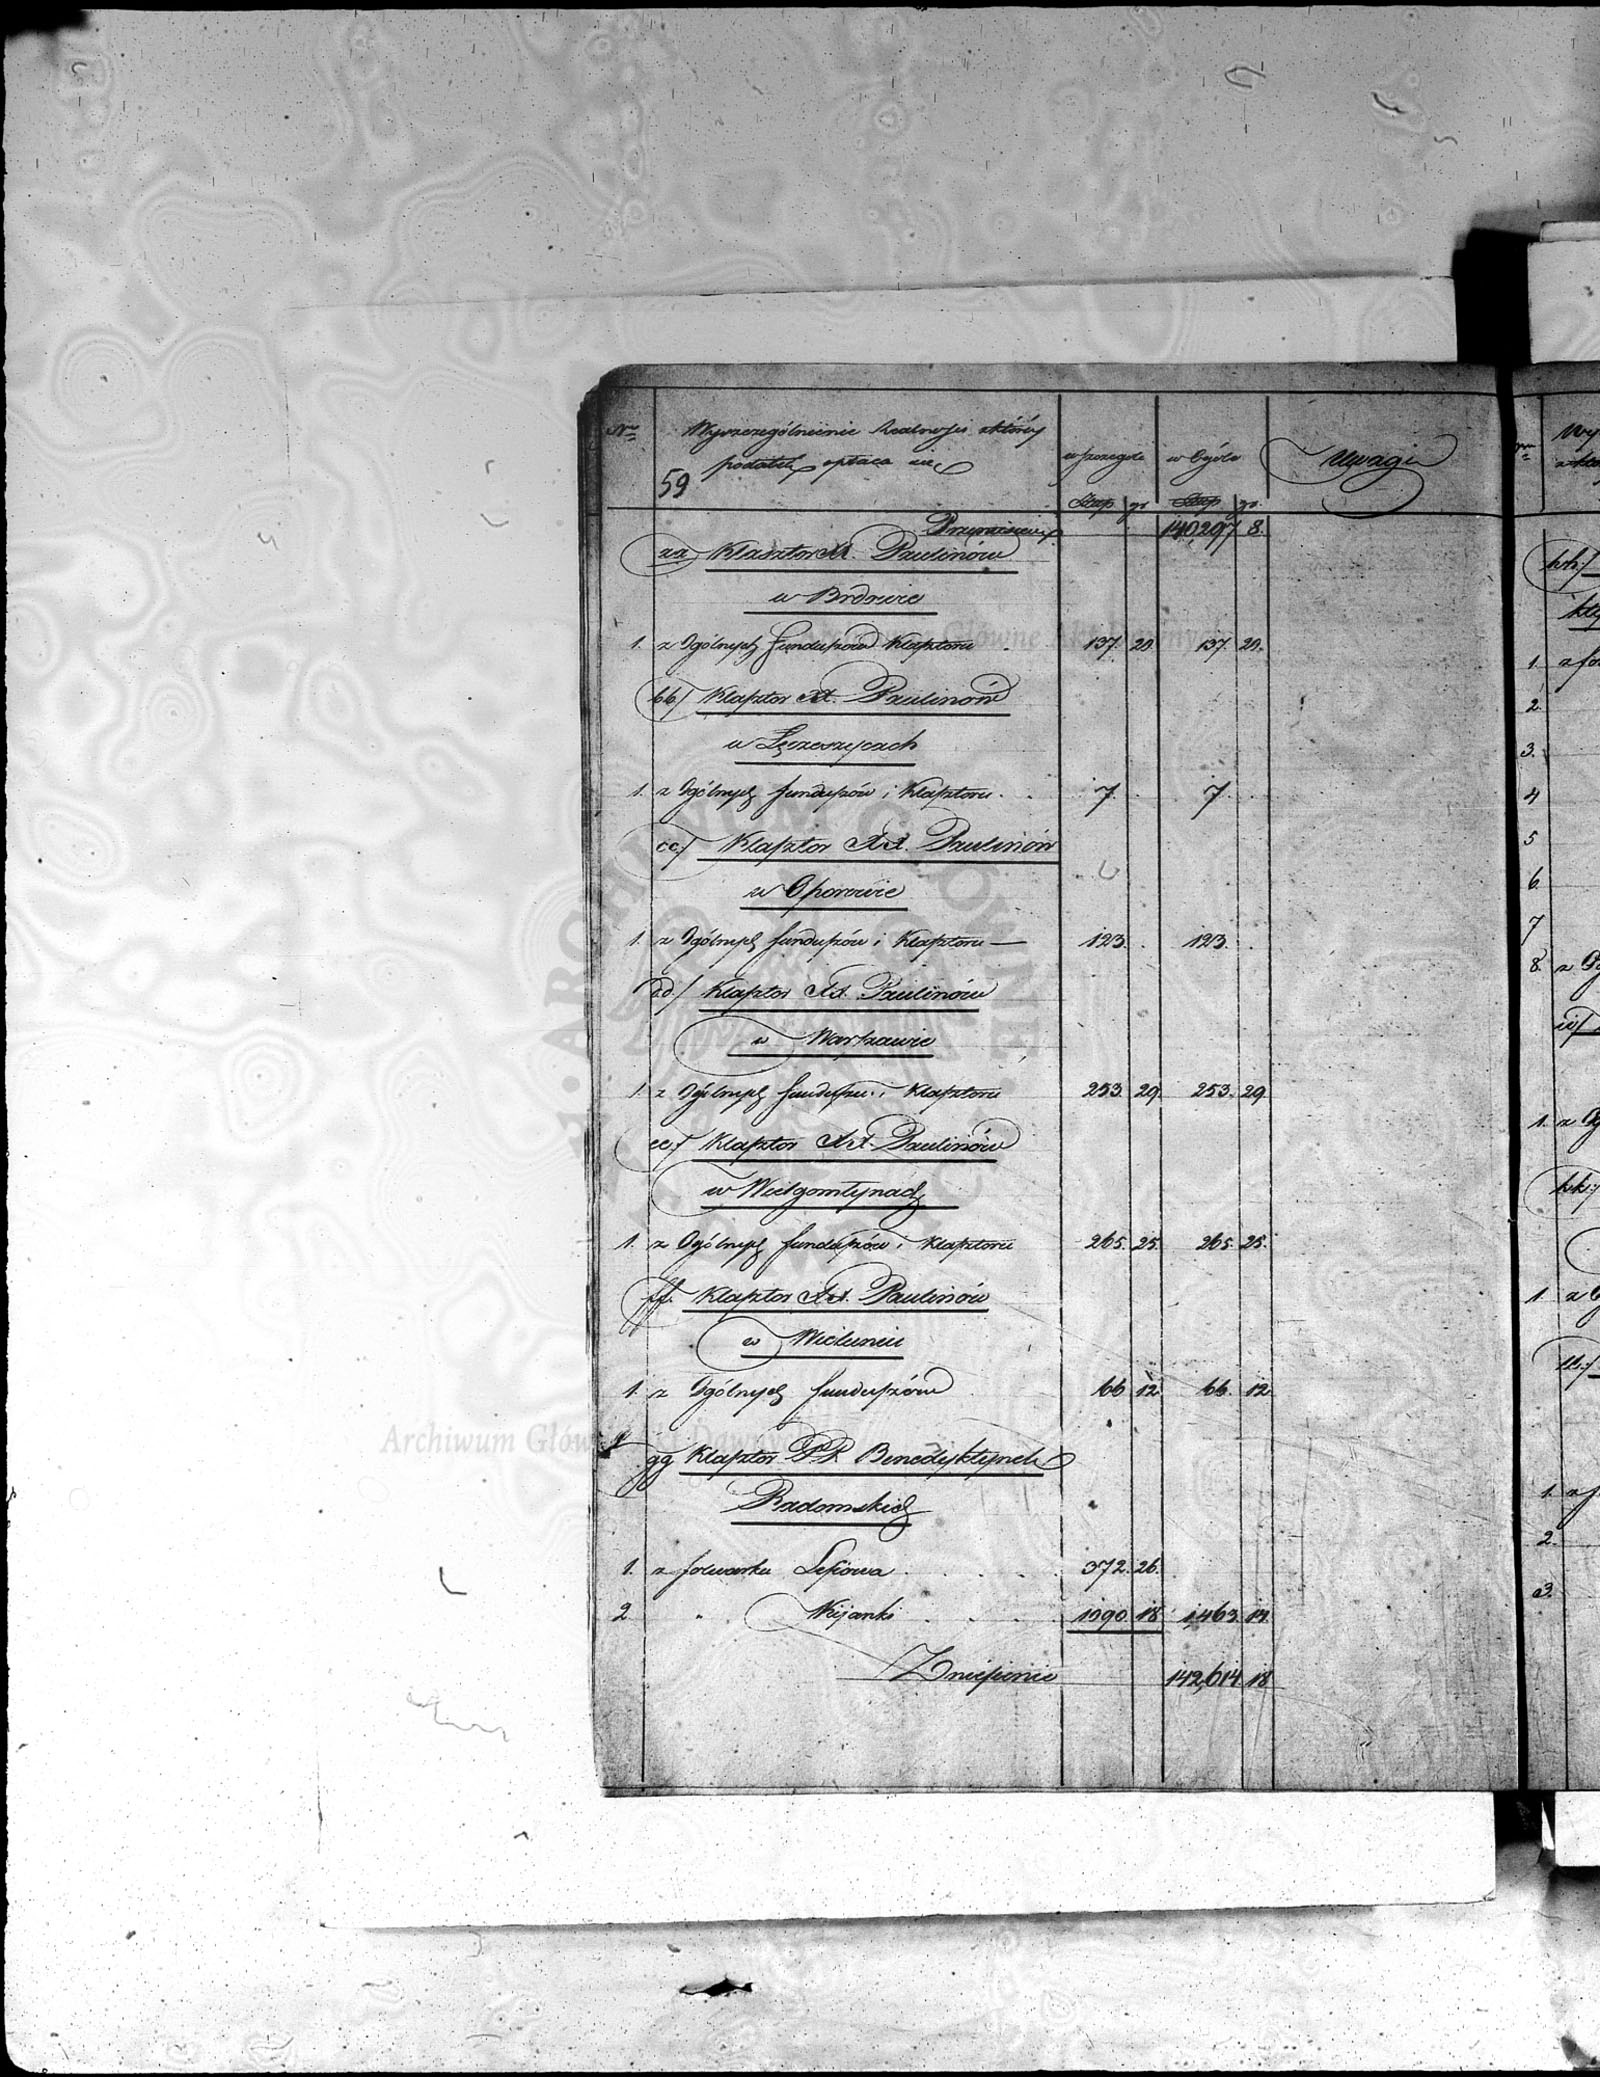 Nro Wyszczególnienie Realności z której
podatek opłaca się w szczególe w Ogóle Uwagi
59
Złtp gr Złtp gr.
Przeniesienie 140,297 8.
aa/ Klasztor XX. Paulinów
w Brdowie
1. z Ogólnych funduszów Klasztoru 137. 20. 137. 20.
bb/ Klasztor XX. Paulinów
w Łęczeszycach
1. z Ogólnych funduszów i Klasztoru . . 7. . 7. .
cc/ Klasztor XX. Paulinów
w Oporowie
1. z Ogólnych funduszów i Klasztoru — 123. . 123. .
dd/ Klasztor XX. Paulinów
w Warszawie
1. z Ogólnych fundusz. i Klasztoru 253. 29. 253. 29.
ee/ Klasztor XX. Paulinów
w Wielgomłynach
1. z Ogólnych funduszów i Klasztoru 265. 25. 265. 25.
ff. Klasztor XX. Paulinów
w Wieluniu
1. z Ogólnych funduszów 66 12 66. 12
gg Klasztor PP. Benedyktynek
Radomskich
1. z folwarku Lesiowa . . . . 372. 26.
2 " Kijanki . . . 1090 18 1,463. 14.
Zniesienie 142,614 18
Archiwum Główne Akt Dawnych
Nro Wy
hh/
1. z fo
2.
3.
4
5
6.
7
8. z Og
ii/
1. z Og
kk/
1. z O
ll/
1. z f
2.
3.